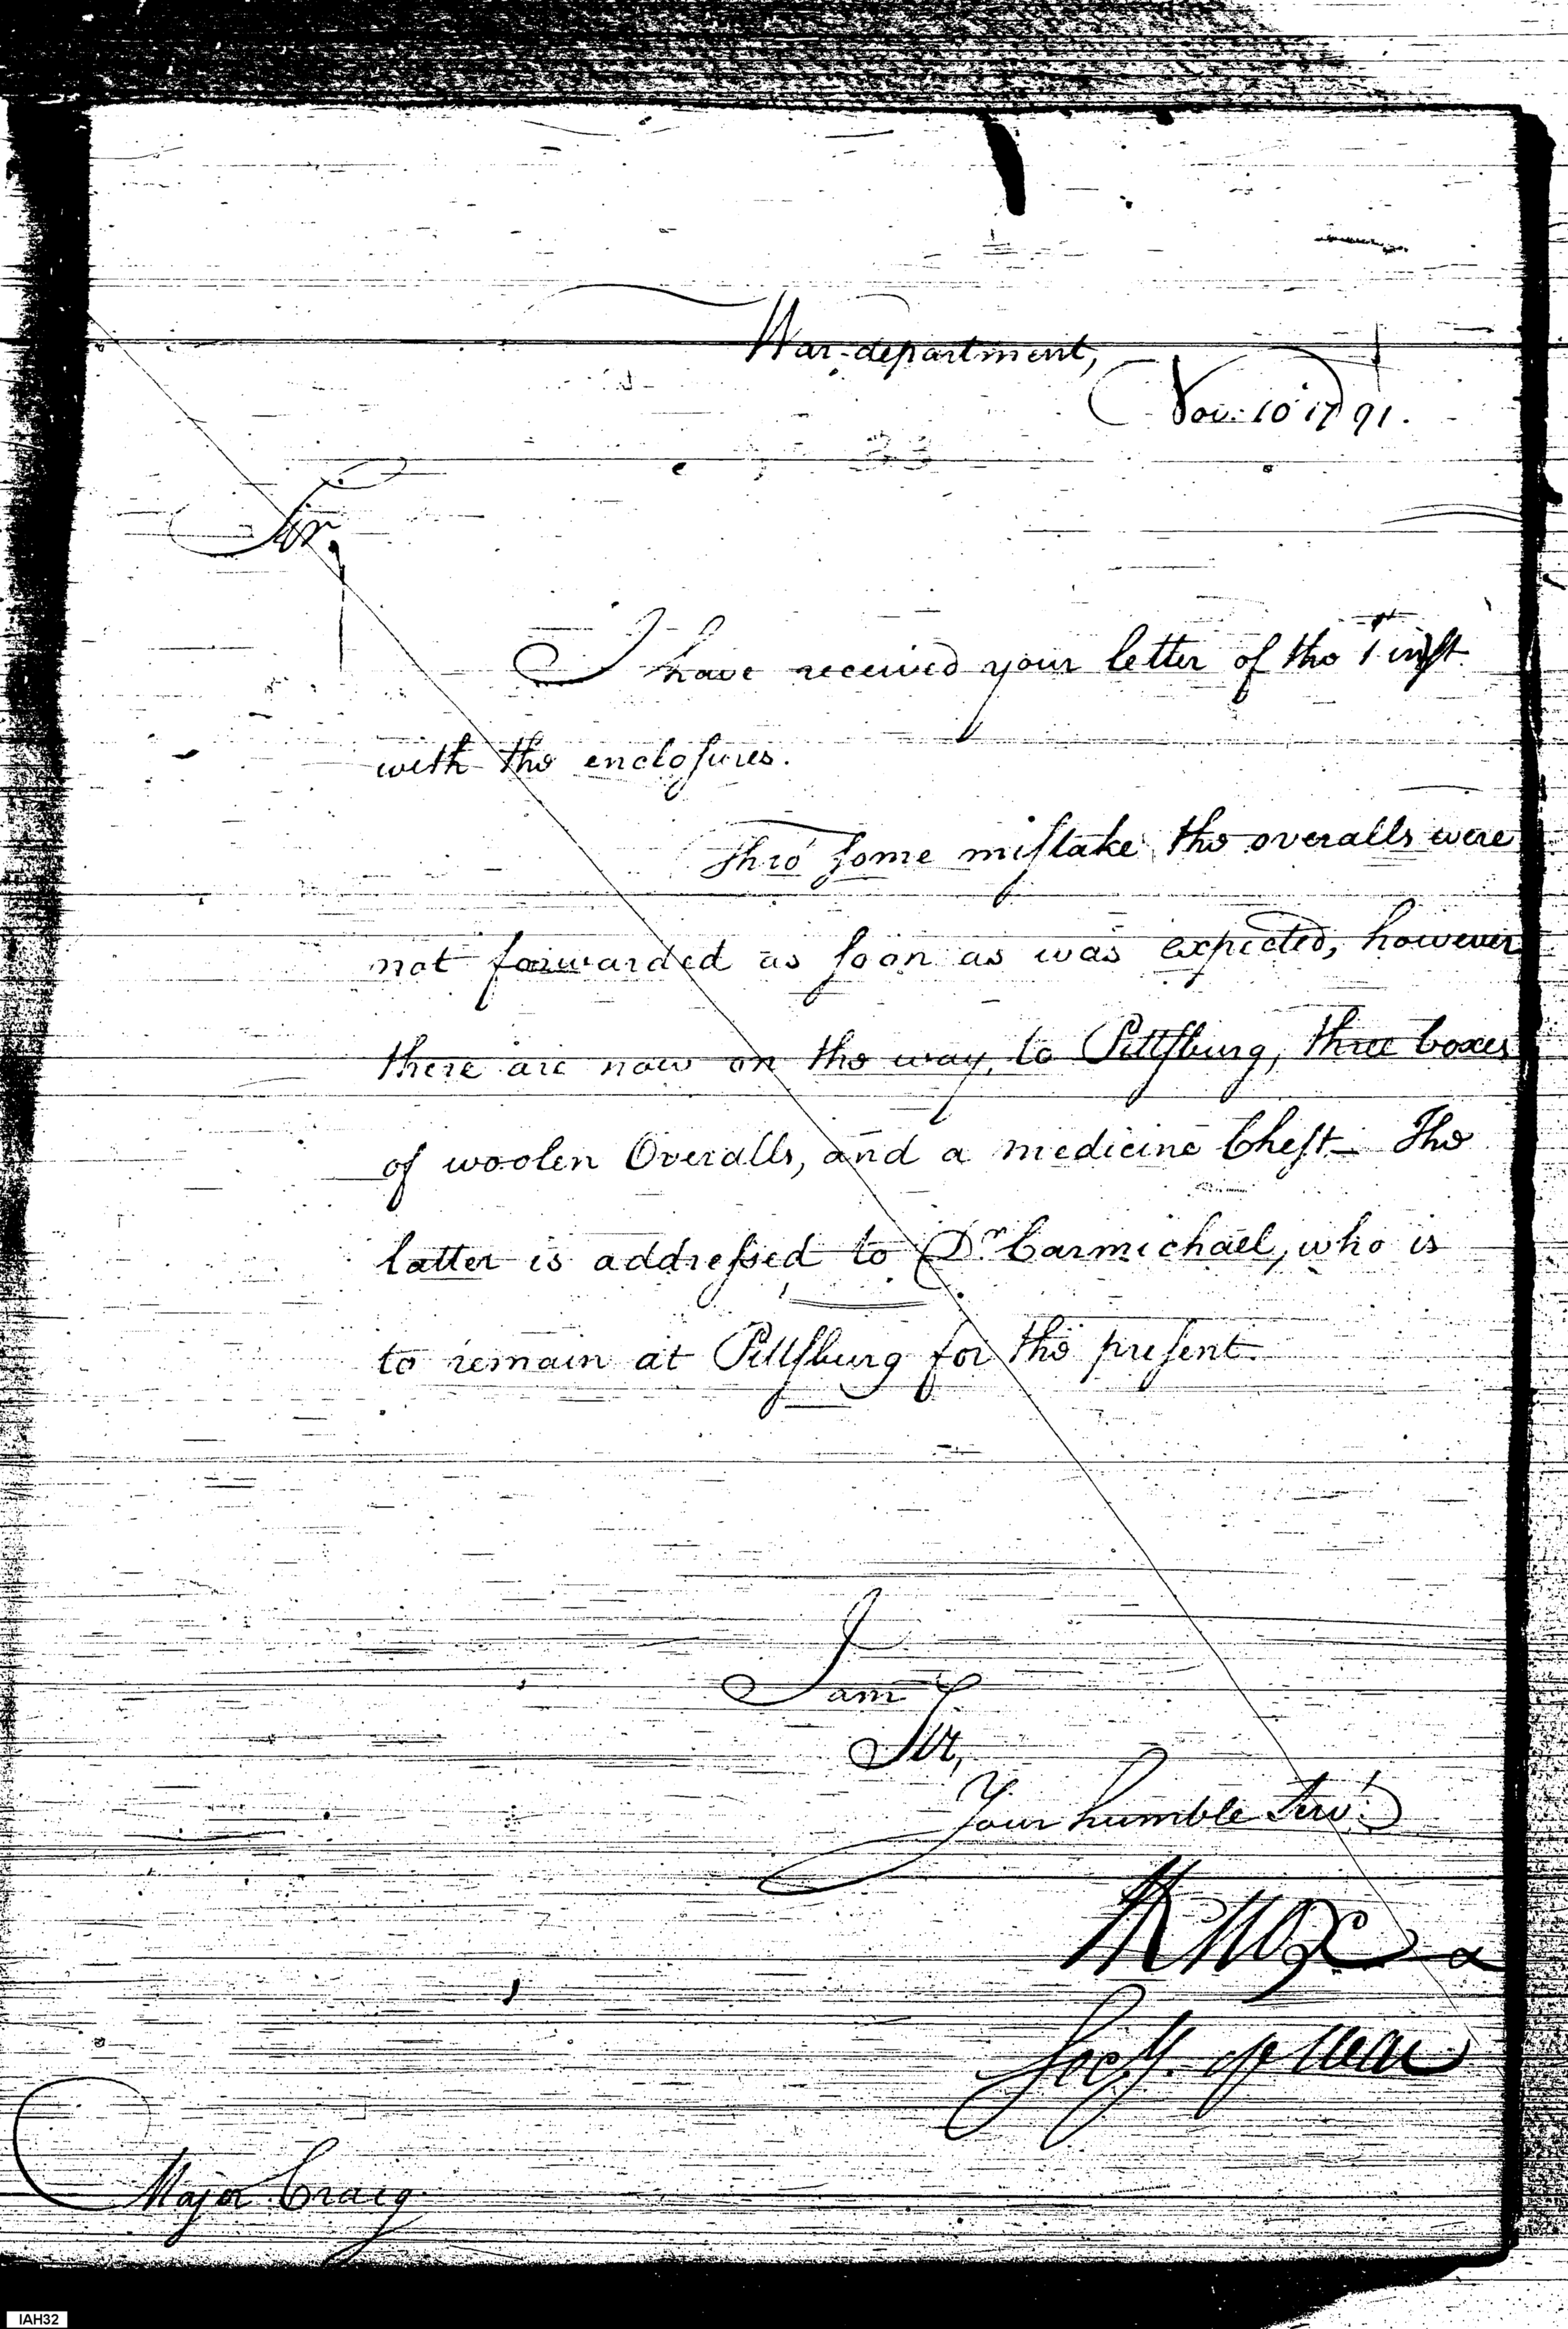 War-department,
Nov: 10 1791.
Sir,
I have received your letter of the 1st inst
with the enclosures.
Thro' some mistake the overalls were
not forwarded as soon as was expected, however
there are now on the way, to Pittsburg, three boxes
of woolen Overalls, and a medicine Chest— The
latter is addressed to Dr. Carmichael, who is
to remain at Pittsburg for the present.
I am
Sir,
Your humble Servt.
HKnox
Secy. of War
Major Craig.
IAH32